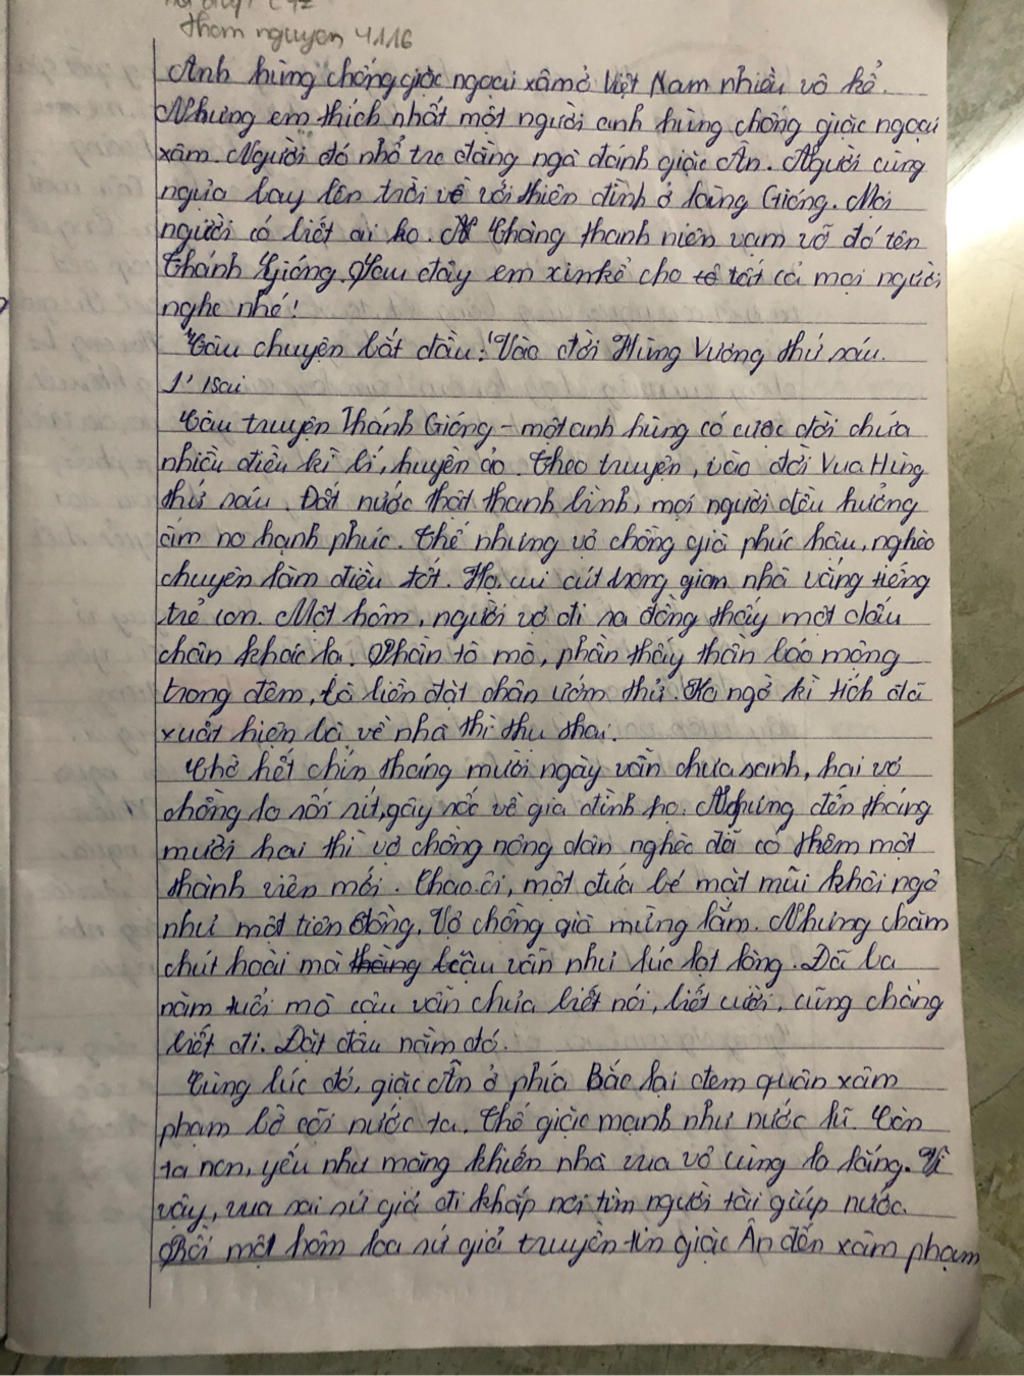 thom nguyen 4116
Anh hùng chống giặc ngoại xâm ở Việt Nam nhiều vô kể.
Nhưng em thích nhất một người anh hùng chống giặc ngoại
xâm. Người đó nhổ tre đằng ngà đánh giặc Ân. Người cùng
ngựa bay lên trời về với thiên đình ở làng Gióng. Mọi
người có biết ai ko. Chàng thanh niên vạm vỡ đó tên
Thánh Gióng. Sau đây em xin kể cho tất cả mọi người
nghe nhé!
Câu chuyện bắt đầu: "Vào đời Hùng Vương thứ sáu.
1' sai
Câu truyện Thánh Gióng - một anh hùng có cuộc đời chứa
nhiều điều kì bí, huyền ảo. Theo truyện, vào đời Vua Hùng
thứ sáu. Đất nước thật thanh bình, mọi người đều hưởng
ấm no hạnh phúc. Thế nhưng vợ chồng già phúc hậu, nghèo
chuyên làm điều tốt. Họ cui cút trong gian nhà vắng tiếng
trẻ con. Một hôm, người vợ đi ra đồng thấy một dấu
chân khác lạ. Phần tò mò, phần thấy thần báo mộng
trong đêm, bà liền đặt chân ướm thử. Ko ngờ kì tích đã
xuất hiện bà về nhà thì thụ thai.
Chờ hết chín tháng mười ngày vẫn chưa sanh, hai vợ
chồng lo sốt sít, gây sốc về gia đình họ. Nhưng đến tháng
mười hai thì vợ chồng nông dân nghèo đã có thêm một
thành viên mới. Chao ôi, một đứa bé mặt mũi khôi ngô
như một tiên đồng. Vợ chồng già mừng lắm. Nhưng chăm
chút hoài mà thằng cậu vẫn như lúc lọt lòng. Đã ba
năm tuổi mà cậu vẫn chưa biết nói, biết cười, cũng chẳng
biết đi. Đặt đâu nằm đó.
Cùng lúc đó, giặc Ân ở phía Bắc lại đem quân xâm
phạm bờ cõi nước ta. Thế giặc mạnh như nước lũ. Còn
ta non, yếu như măng khiến nhà vua vô cùng lo lắng. Vì
vậy, vua sai sứ giả đi khắp nơi tìm người tài giúp nước.
Rồi một hôm loa sứ giả truyền tin giặc Ân đến xâm phạm